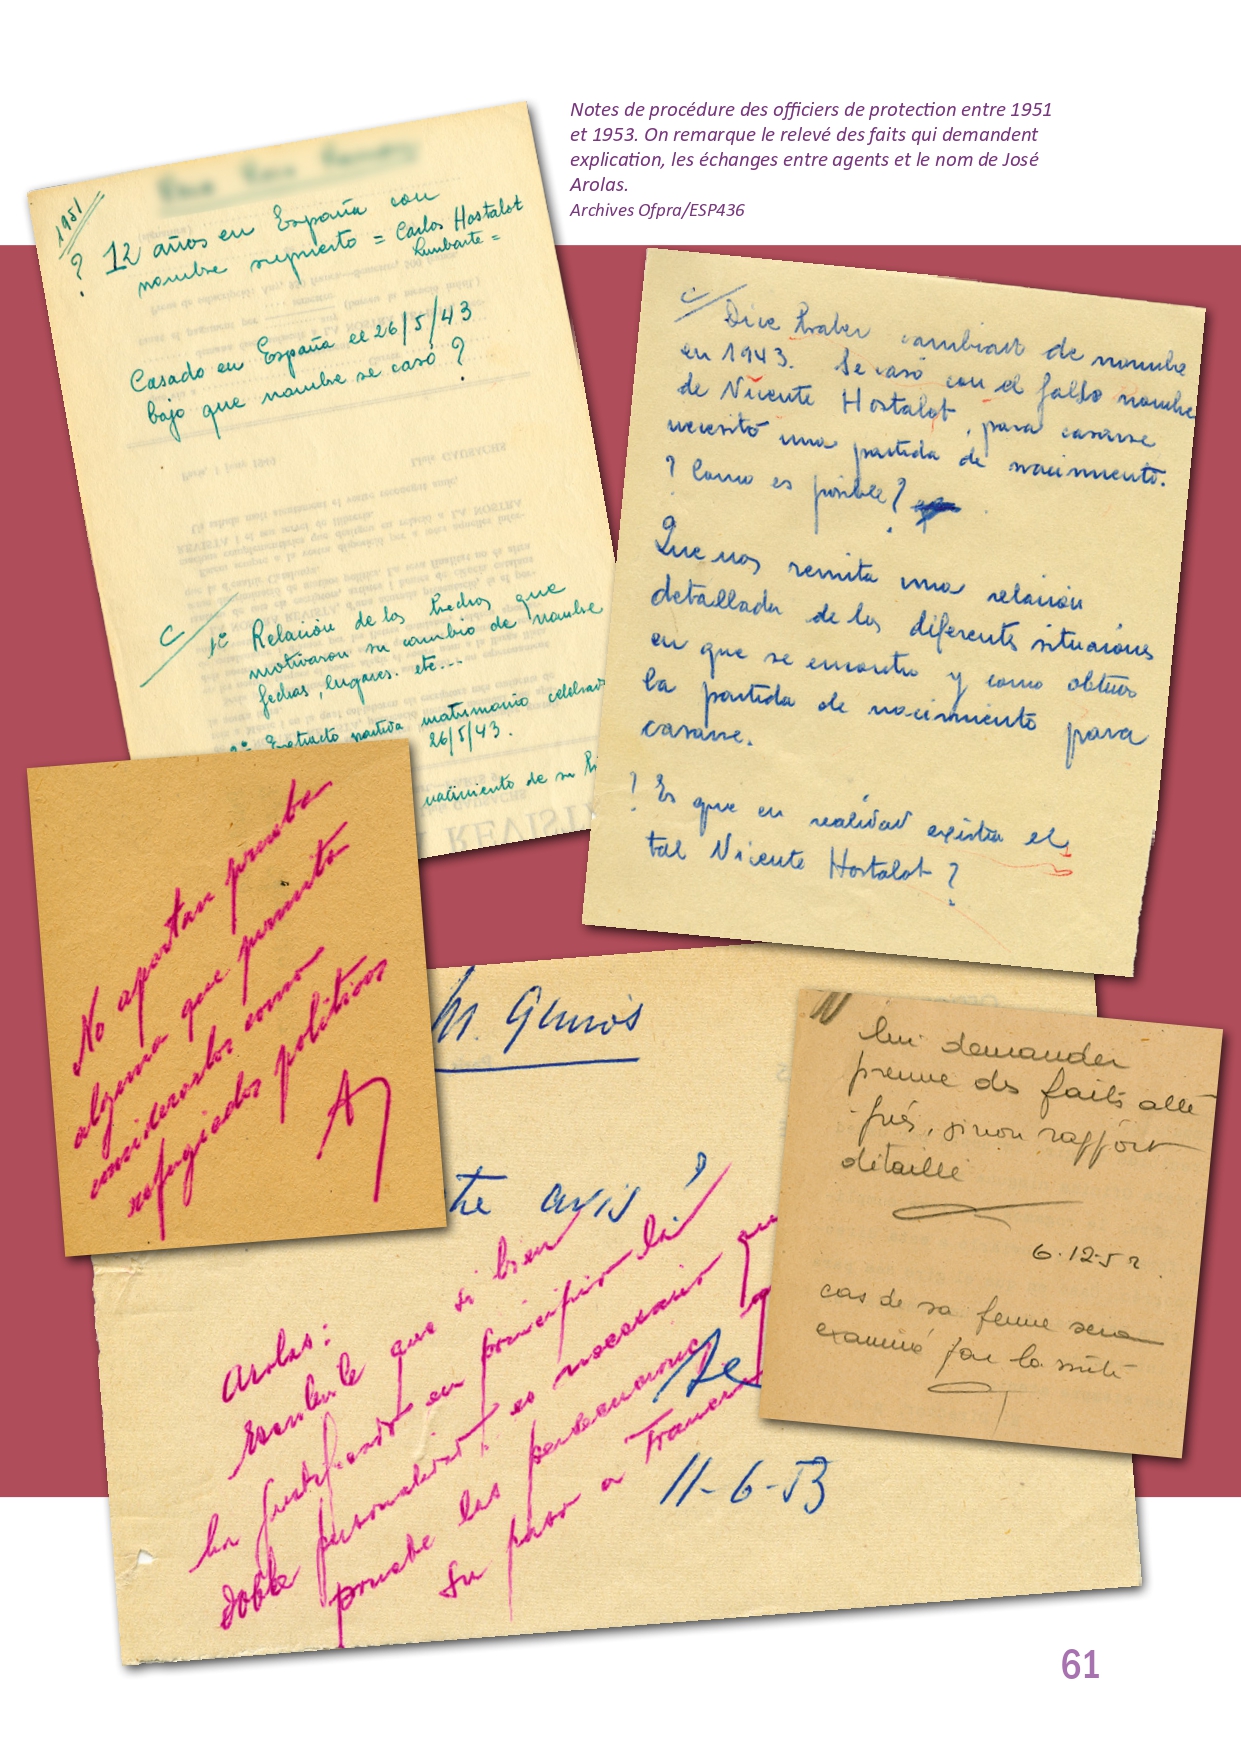 Notes de procédure des officiers de protection entre 1951
et 1953. On remarque le relevé des faits qui demandent
explication, les échanges entre agents et le nom de José
Arolas.
Archives Ofpra/ESP436
1951
? 12 años en España con
nombre supuesto = Carlos Hostalot
Lumbarte =
Casado en España el 26/5/43
bajo que nombre se casó ?
C/ 1º Relación de los hechos que
motivaron su cambio de nombre
fechas, lugares. etc...
2º Extracto partida matrimonio celebrado
26/5/43.
nacimiento de su hi
C/ Dice haber cambiar de nombre
en 1943. Se casó con el falso nombre
de Vicente Hostalot, para casarse
necesitó una partida de nacimiento.
? Como es posible?
Que nos remita una relación
detallada de las diferentes situaciones
en que se encontro y como obtuvo
la partida de nacimiento para
casarse.
? Es que en realidad existia el
tal Vicente Hostalot ?
No aportan prueba
alguna que permita
considerarlos como
refugiados politicos
A
M.
tre avis ?
Arolas:
que si bien
la justificado en principio la
doble personalidad es necesario que
pruebe las persecuciones
su paso a Francia
11-6-53
lui demander
preuve des faits allé
gués, sinon rapport
détaillé
6.12.52
cas de sa femme sera
examiné par la suite
61